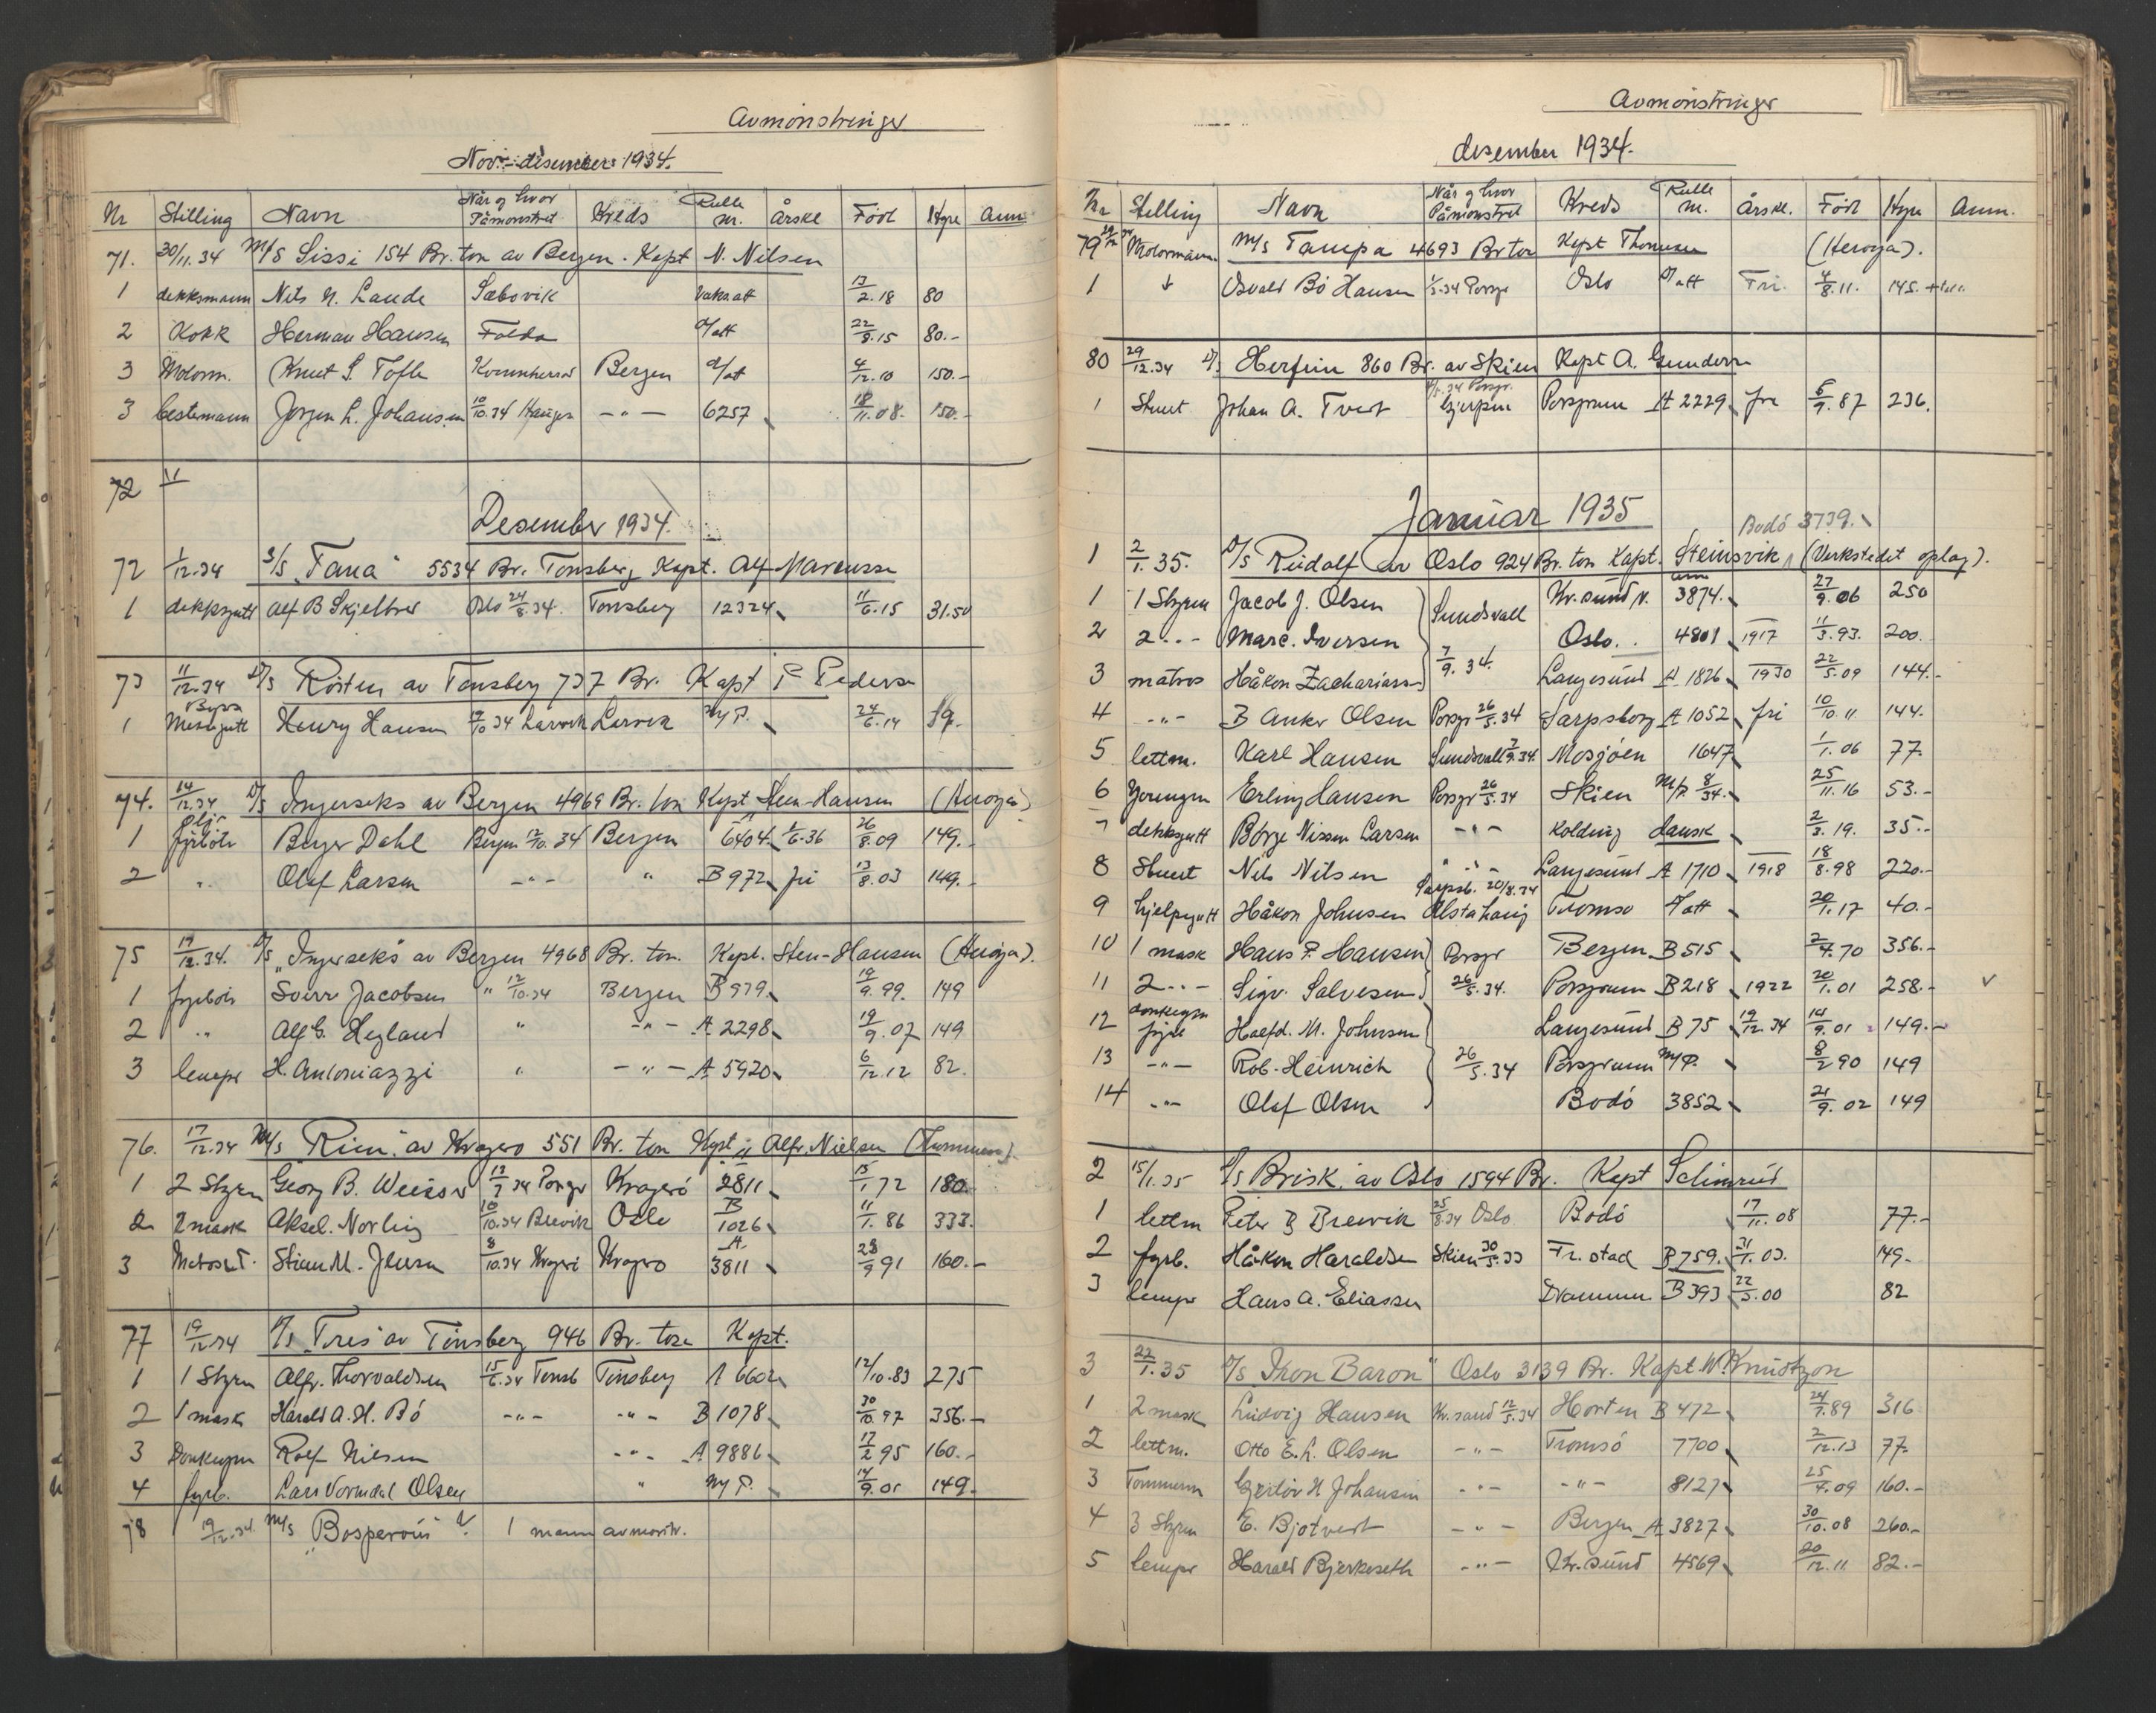 Avmönstringer
Nov. - desember 1934.
Nr Stilling Navn Når og hvor Påmönstret Kreds Rulle nr. Årskl Född Hyre Anm
71. 30/11.34 M/S Sissi 154 Br. ton av Bergen. Kapt N. Nilsen
1 dekksmann Nils N. Lande Sæbovik Vaksatt 13/2.18 80
2 Kokk Herman Hansen Folda 22/9.15 80.-
3 Motorm. Knut S. Tofte Bergen 4/12.10 150.-
3 bestemann Jörgen L. Johansen 10/10.34 Hauges -"- 6257 18/11.08. 150.-
72 "
Desember 1934.
72 1/12.34 S/S "Fana" 5534 Br. Tönsberg Kapt. Alf Marcussen
1 dekksgutt Alf B Skjelbred Oslo 24/8.34. Tönsberg 12324 11/6.15 31.50
73 11/12.34 D/S Rösten av Tönsberg 737 Br. Kapt P Pedersen
1 Byssa Messegutt Henry Hansen 9/10 34 Larvik Larvik M/P. 24/6.14 59.
74. 14/12.34 D/S Ingerseks av Bergen 4969 Br. ton Kapt Steen-Hansen (Heröya)
1 olje fyrböter Birger Dahl Bergen 12/10.34 Bergen 6404. 1/6.36 26/8.09 149.-
2 " Olaf Larsen -"- " B 972 fri 13/8.03 149.-
75 17/12.34. D/S "Ingerseks" av Bergen 4968 Br. ton. Kapt. Sten-Hansen (Heröya).
1 fyrböt Sverr Jacobsen " 12/10.34 Bergen B 979. 19/9.99. 149
2 " Alf G. Hegland " -"- A 2298 19/9.07 149
3 lemper H. Antoniazzi " -"- A 5920 6/12.12 82.
76. 17/12.34 M/S "Rim" av Kragerö 551 Br. ton Kapt Alfr. Nielsen
1 2 Styrm Georg B. Weisser 13/7 34 Porsgr Kragerö 2811 15/1 72 180.-
2 2 mask Aksel. Norling 10/10.34 Brevik Oslo B 1026 11/1.86 333.
3 Matros Stian M. Jensen 8/10.34 Kragerö Kragerö A 3811 28/9 91 160.-
77 19/12.34 D/S "Tres" av Tönsberg 946 Br. ton Kapt.
1 1 Styrm Alfr. Thorvaldsen 15/6.34 Tönsb Tönsberg A 6602 12/10.83 275
2 1 mask Harald A. H. Bö -"- -"- B 1078 30/10.97 356.-
3 Donkeym Rolf Nilsen -"- A 9886 17/2 95 160.-
4 fyrb. Lars Normdal Olsen " M/P. 14/9.01 149.
78 19/12.34. M/S "Bosperous"? 1 mann avmönstr.
Avmönstringer
desember 1934.
Nr Stilling Navn Når og hvor Påmönstret Kreds Rulle nr. Årskl. Född Hyre Anm.
79 Motormann M/S Tampa 4693 Br ton Kapt Thomsen (Heröya).
1 Osvald Bö Hansen 1/5.34 Porsgr Oslo Fri. 4/8.11. 145.
80 29/12.34 D/S Herfinn 860 Br. av Skien Kapt A. Gundersen
1 Stuert Johan A. Tveit Gjerpen Porsgrunn A 2229 fri 6/9.87 236.
Januar 1935
Bodö 3739.
1 2/1.35. D/S Rudolf av Oslo 924 Br. ton Kapt. Steinsvik (Verkstedet oplag).
1 1 Styrm Jacob J. Olsen Sundsvall Kr.sund N. 3874. 27/9.06 250
2 2 " - Marc. Iversen Oslo. 4801 1917 11/3.93. 200.
3 matros Håkon Zachariassen 7/9.34. Langesund A 1826 1930 22/5.09 144.-
4 -"- B Anker Olsen Porsgr 26/5.34 Sarpsborg A 1052 fri 10/10.11 144.
5 lettm. Karl Hansen Sundsvall 7/9.34. Mosjöen 1647 1/1.06 77.
6 Jerungm Erling Hansen Porsgr 26/5.34 Skien M/P. 8/34. 25/11.16 53.-
7 dekksgutt Börge Nissen Larsen -"- Kolding dansk 2/3.19. 35.-
8 Stuert Nils Nilsen " Langesund A 1710 1918 18/8.98 220.-
9 hjelpegutt Håkon Johnsen Sarpsb. 20/8.34 Alstahaug Tromsö 20/1.17 40.-
10 1 mask Hans P. Hansen Porsgr Bergen B 515 2/4.70 356.-
11 2 " - Sigv. Salvesen 26/5.34. Porsgrunn B 218 1922 20/1.01 258.- v
12 donkeym fyrb Halfd. M. Johnsen Langesund B 75 19/12.34 14/9.01 149.-
13 -"- Rob. Heinrich 26/5.34 Porsgrunn M/P. 8/2 90 149
14 -"- Olaf Olsen Bodö 3852 21/9.02 149
2 15/1.35 D/S Brisk av Oslo 1594 Br. Kapt Selimrud
1 lettm Peter B Breivik 25/8.34 Oslo Bodö 17/11.08 77.-
2 fyrb. Håkon Haraldsen Skien 30/5.33 Fr.stad B 759. 31/1.03. 149.-
3 lemper Hans A. Eliassen Drammen B 393 22/5.00 82
3 22/1.35 D/S "Iron Baron" Oslo 3139 Br. Kapt. W. Knudtzon
1 2 mask Ludvig Hansen Kr.sand 12/5.34 Horten B 472 24/7.89 316
2 lettm. Otto E. L. Olsen -"- Tromsö 7700 2/12.13 77.-
3 Tömmerm H Johansen -"- -"- 8127 25/4.09 160.-
4 3 Styrm E. Bjotveit -"- Bergen A 3827 30/10.08 260.-
5 lemper Harald Bjerkeseth -"- Kr.sund 4569 20/12.11 82.-